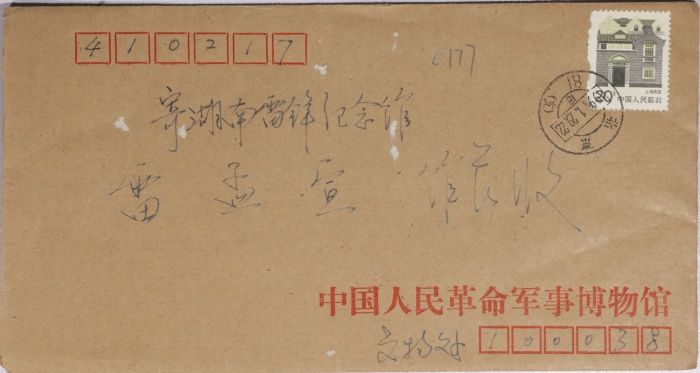 410217
0177
寄湖南雷锋纪念馆
雷孟宣 馆长收
中国人民邮政
上海民居
北京
中国人民革命军事博物馆
文物处 100038